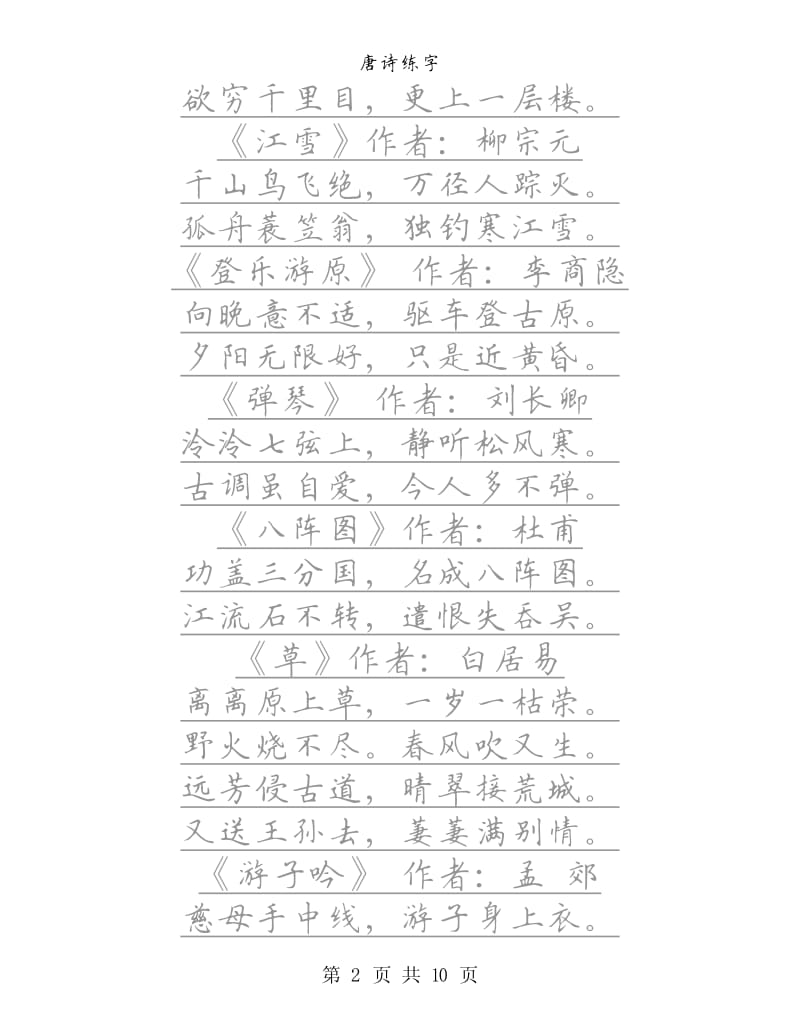 唐诗练字
欲穷千里目，更上一层楼。
《江雪》作者：柳宗元
千山鸟飞绝，万径人踪灭。
孤舟蓑笠翁，独钓寒江雪。
《登乐游原》 作者：李商隐
向晚意不适，驱车登古原。
夕阳无限好，只是近黄昏。
《弹琴》 作者：刘长卿
泠泠七弦上，静听松风寒。
古调虽自爱，今人多不弹。
《八阵图》作者：杜甫
功盖三分国，名成八阵图。
江流石不转，遣恨失吞吴。
《草》作者：白居易
离离原上草，一岁一枯荣。
野火烧不尽。春风吹又生。
远芳侵古道，晴翠接荒城。
又送王孙去，萋萋满别情。
《游子吟》 作者：孟 郊
慈母手中线，游子身上衣。
第 2 页 共 10 页